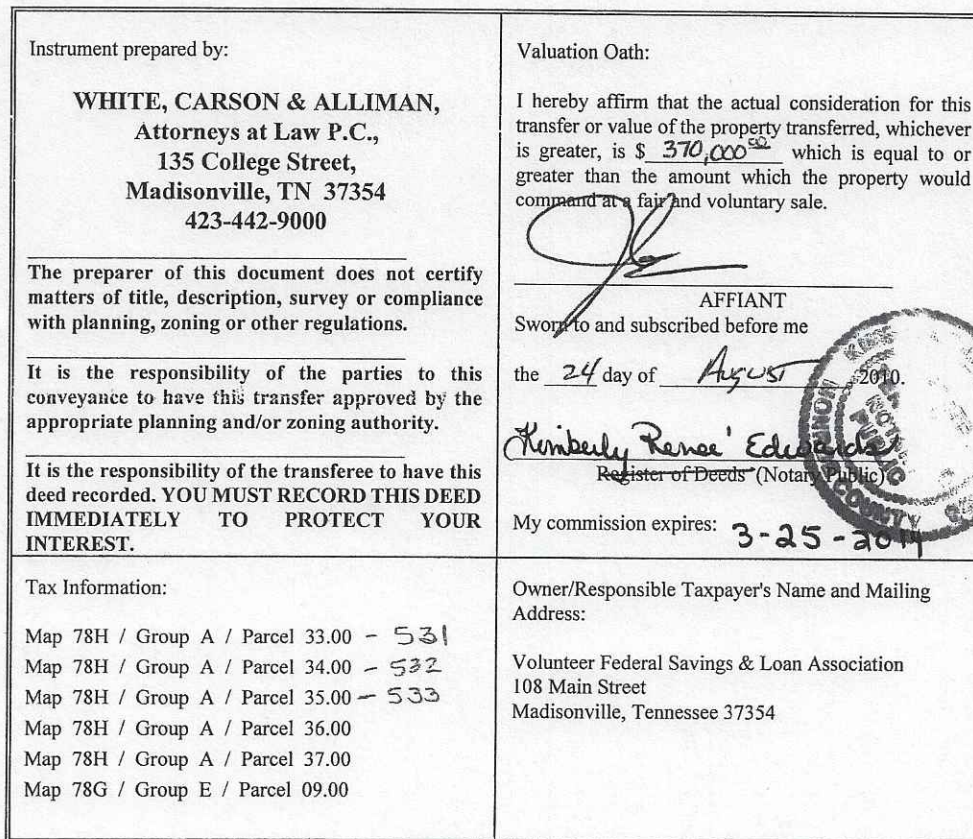 Instrument prepared by:
WHITE, CARSON & ALLIMAN,
Attorneys at Law P.C.,
135 College Street,
Madisonville, TN 37354
423-442-9000
The preparer of this document does not certify
matters of title, description, survey or compliance
with planning, zoning or other regulations.
It is the responsibility of the parties to this
conveyance to have this transfer approved by the
appropriate planning and/or zoning authority.
It is the responsibility of the transferee to have this
deed recorded. YOU MUST RECORD THIS DEED
IMMEDIATELY TO PROTECT YOUR
INTEREST.
Valuation Oath:
I hereby affirm that the actual consideration for this
transfer or value of the property transferred, whichever
is greater, is $ 370,000 00 which is equal to or
greater than the amount which the property would
command at a fair and voluntary sale.
AFFIANT
Sworn to and subscribed before me
the 24 day of August 2010.
Kimberly Renee' Edwards
Register of Deeds (Notary Public)
My commission expires: 3-25-2014
Tax Information:
Map 78H / Group A / Parcel 33.00 - 531
Map 78H / Group A / Parcel 34.00 - 532
Map 78H / Group A / Parcel 35.00 - 533
Map 78H / Group A / Parcel 36.00
Map 78H / Group A / Parcel 37.00
Map 78G / Group E / Parcel 09.00
Owner/Responsible Taxpayer's Name and Mailing
Address:
Volunteer Federal Savings & Loan Association
108 Main Street
Madisonville, Tennessee 37354
NOTARY
PUBLIC
COUNTY